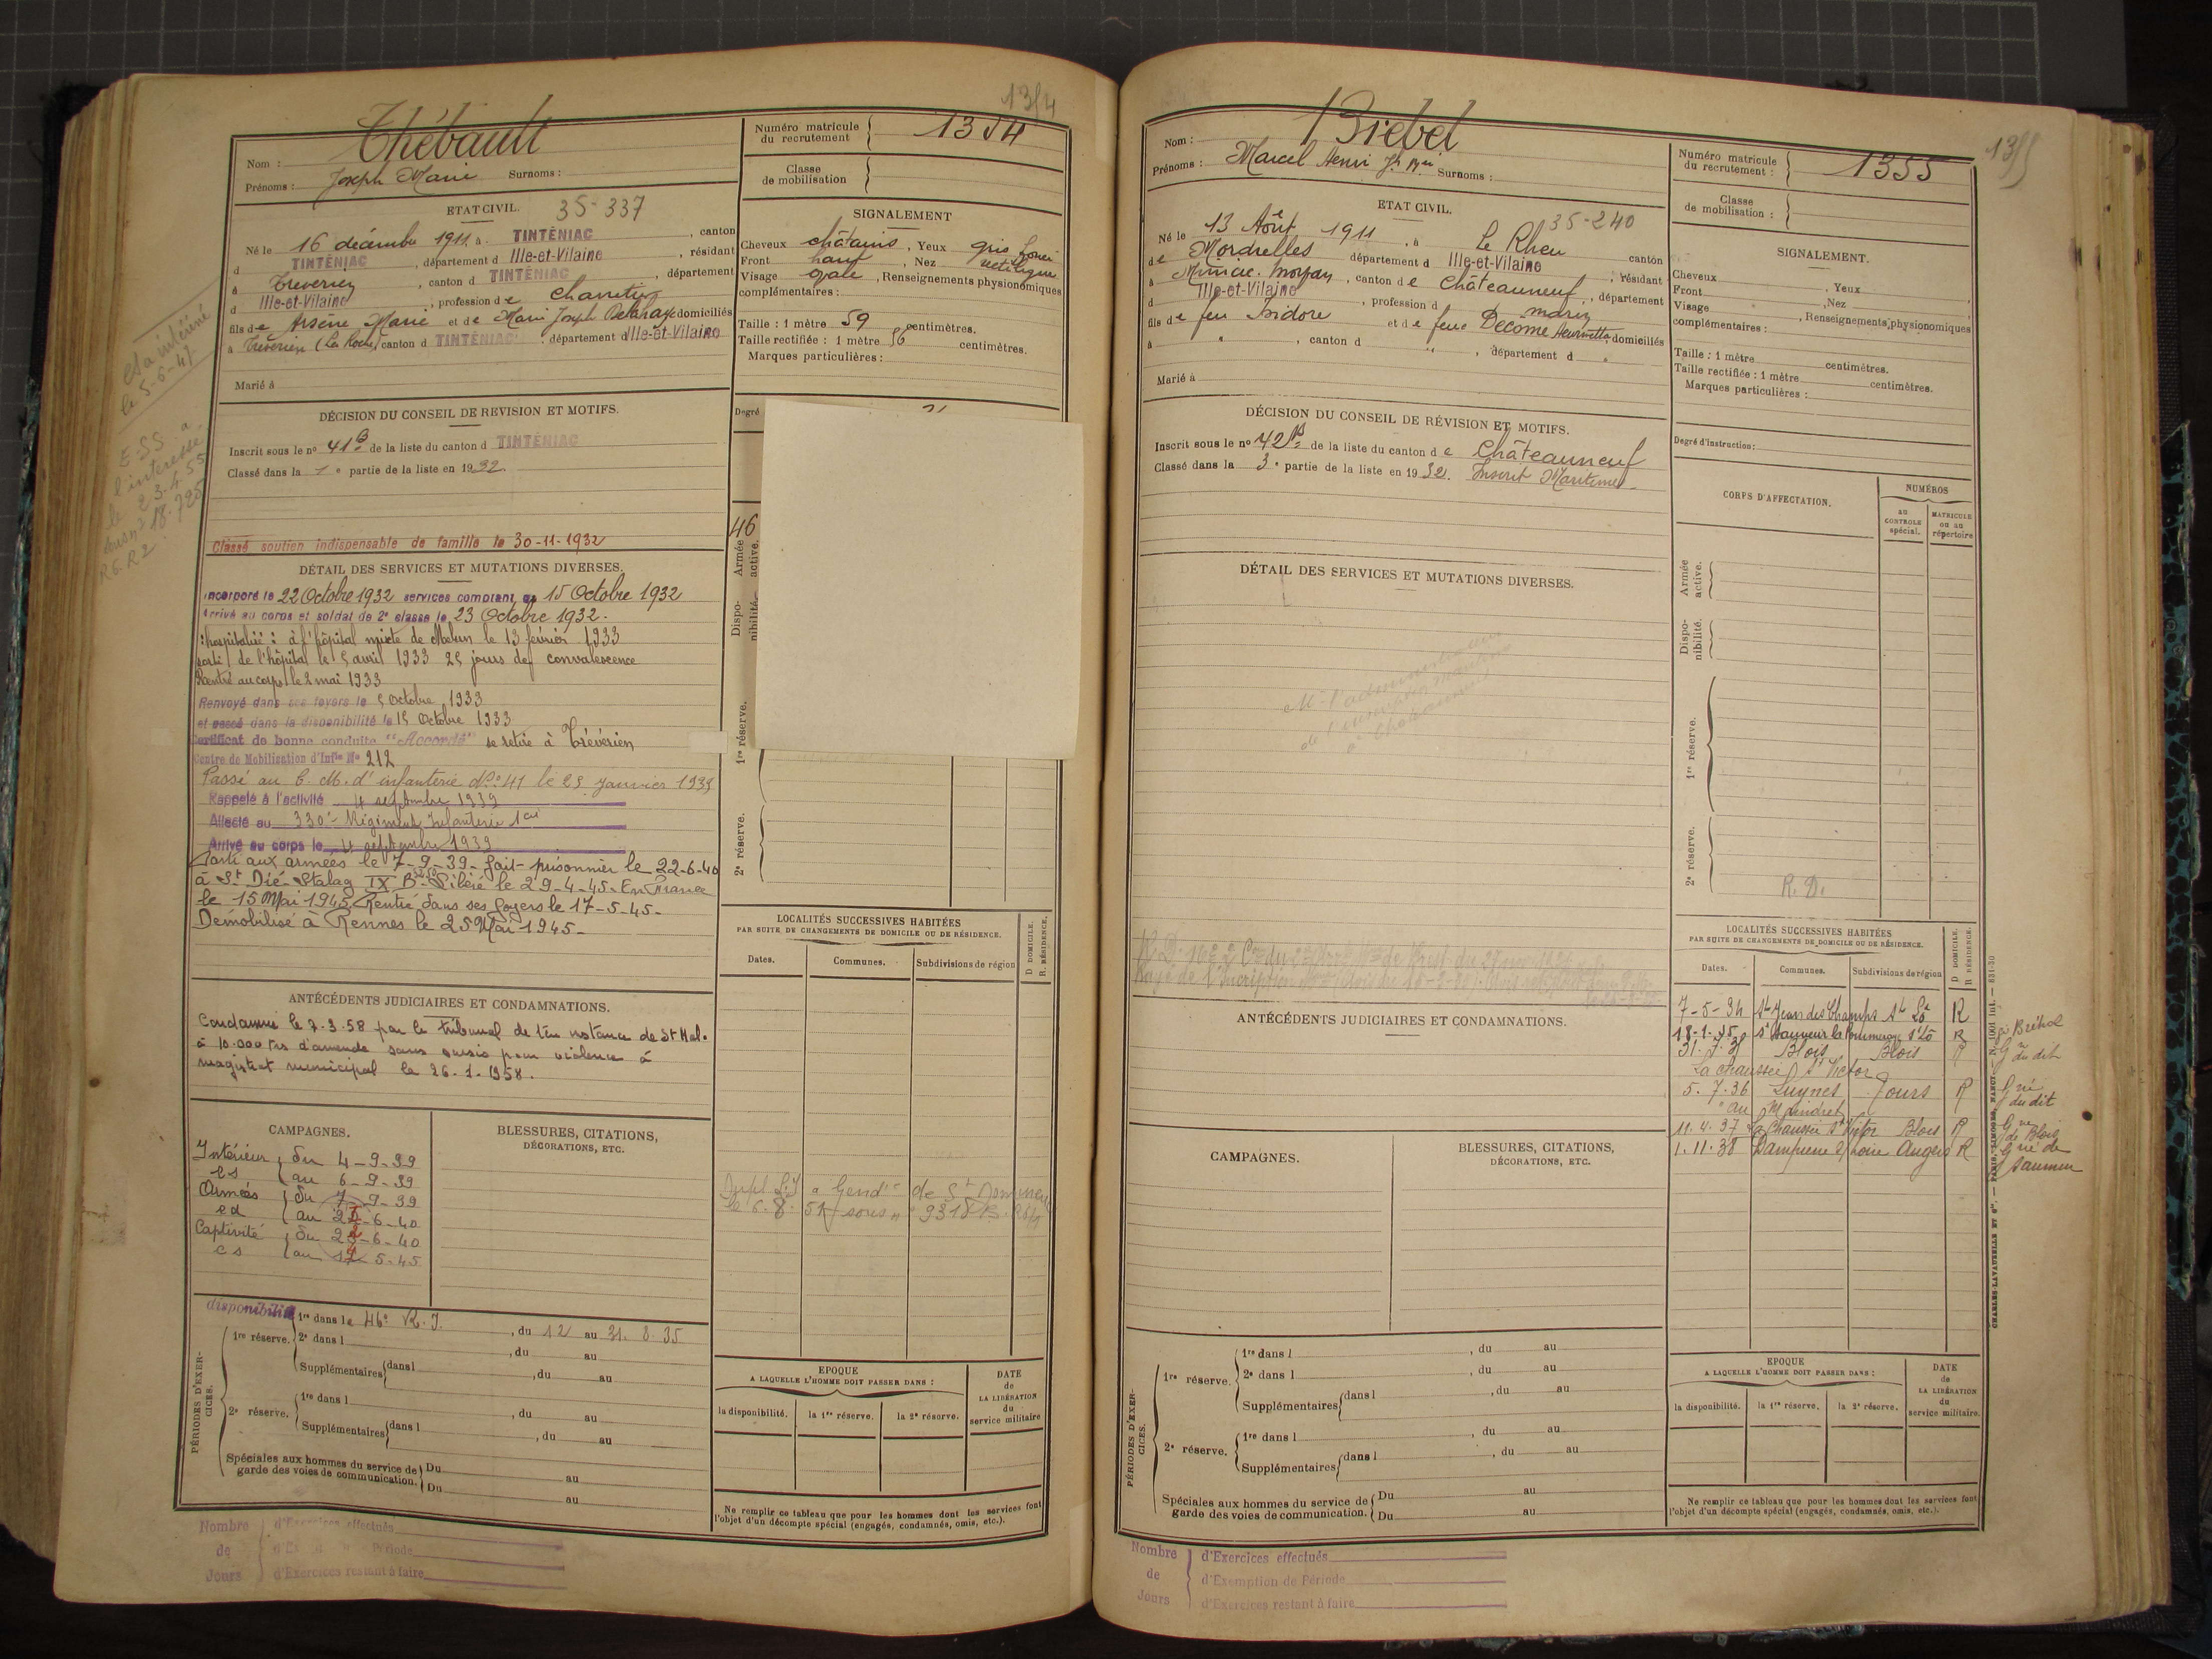 1354
Thébault
Nom :
Prénoms : Joseph Marie Surnoms :
Numéro matricule du recrutement 1354
Classe de mobilisation
ETAT CIVIL. 35-337
Né le 16 décembre 1911, à TINTÉNIAC, canton
d TINTÉNIAC, département d Ille-et-Vilaine, résidant
à Trévérien, canton d TINTÉNIAC, département
d Ille-et-Vilaine, profession de charretier
fils de Arsène Marie et de Marie Joseph Delahaye domiciliés
à Trévérien (La Roche) canton d TINTÉNIAC, département d Ille-et-Vilaine
Marié à
SIGNALEMENT
Cheveux châtains, Yeux gris foncé
Front haut, Nez rectiligne
Visage ovale, Renseignements physionomiques
complémentaires :
Taille : 1 mètre 59 centimètres.
Taille rectifiée : 1 mètre 56 centimètres.
Marques particulières :
Degré
DÉCISION DU CONSEIL DE REVISION ET MOTIFS.
Inscrit sous le nº 41 B de la liste du canton d TINTÉNIAC
Classé dans la 1e partie de la liste en 1932.
Classé soutien indispensable de famille le 30-11-1932
le 5-6-41
E-SS a
l'intéressé
le 23.4.55
sous nº 18.725
R6.R2
DÉTAIL DES SERVICES ET MUTATIONS DIVERSES.
Incorporé le 22 Octobre 1932 services comptant du 15 Octobre 1932
Arrivé au corps et soldat de 2e classe le 23 Octobre 1932.
hospitalisé : à l'hôpital mixte de Melun le 13 février 1933
sorti de l'hôpital le 5 avril 1933 25 jours de convalescence
Rentré au corps le 2 mai 1933
Renvoyé dans ses foyers le 5 Octobre 1933
et passé dans la disponibilité le 15 Octobre 1933
Certificat de bonne conduite "Accordé" se retire à Trévérien
Centre de Mobilisation d'Infie Nº 212
Passé au C. M. d'infanterie Nº 41 le 25 janvier 1935
Rappelé à l'activité 4 septembre 1939
Affecté au 330e Régiment Infanterie 1 Cie
Arrivé au corps le 4 septembre 1939
Parti aux armées le 7-9-39. fait prisonnier le 22-6-40
à St Dié. Stalag IX B. Libéré le 29-4-45. En France
le 15 Mai 1945. Rentré dans ses foyers le 17-5-45.
Démobilisé à Rennes le 25 Mai 1945.
46
Armée active.
Disponibilité.
1re réserve.
2e réserve.
ANTÉCÉDENTS JUDICIAIRES ET CONDAMNATIONS.
Condamné le 7.3.58 par le tribunal de 1ère instance de St Malo
à 10.000 frs d'amende sans sursis pour violence à
magistrat municipal le 26.1.1958.
CAMPAGNES.
Intérieur du 4-9-39
cs au 6-9-39
Armées du 7-9-39
cd au 22-6-40
Captivité du 23-6-40
cs au 5-45
BLESSURES, CITATIONS,
DÉCORATIONS, ETC.
LOCALITÉS SUCCESSIVES HABITÉES
PAR SUITE DE CHANGEMENTS DE DOMICILE OU DE RÉSIDENCE.
D DOMICILE.
R. RÉSIDENCE.
Dates. Communes. Subdivisions de région
Dupl. à Gendie de St
le 6.8.51 sous nº 9318
PÉRIODES D'EXERCICES.
disponibilité
1re réserve. 1re dans le 46e R.I., du 12 au 31.8.35
2e dans l, du au
Supplémentaires dans l, du au
2e réserve. 1re dans l, du au
Supplémentaires dans l, du au
Spéciales aux hommes du service de garde des voies de communication. Du au
Du au
EPOQUE
A LAQUELLE L'HOMME DOIT PASSER DANS :
la disponibilité. la 1re réserve. la 2e réserve.
DATE de LA LIBÉRATION du service militaire
Ne remplir ce tableau que pour les hommes dont les services font
l'objet d'un décompte spécial (engagés, condamnés, omis, etc.).
Nombre de Jours
d'Exercices effectués
Période
d'Exercices restant à faire
1355
Biebel
Nom :
Prénoms : Marcel Henri Jh Mie Surnoms :
Numéro matricule du recrutement : 1355
Classe de mobilisation :
ETAT CIVIL. 35-240
Né le 13 Août 1911, à Le Rheu
de Mordelles département d Ille-et-Vilaine canton
à Miniac-Morvan, canton de Châteauneuf, résidant
d Ille-et-Vilaine, profession d marin, département
fils de feu Isidore et de feue Decome Henriette domiciliés
à ", canton d ", département d "
Marié à
SIGNALEMENT.
Cheveux, Yeux
Front, Nez
Visage, Renseignements physionomiques
complémentaires :
Taille : 1 mètre centimètres.
Taille rectifiée : 1 mètre centimètres.
Marques particulières :
Degré d'instruction :
DÉCISION DU CONSEIL DE RÉVISION ET MOTIFS.
Inscrit sous le nº 42 B de la liste du canton de Châteauneuf
Classé dans la 3e partie de la liste en 1932. Inscrit Maritime
CORPS D'AFFECTATION.
NUMÉROS
au CONTROLE spécial.
MATRICULE ou au répertoire
DÉTAIL DES SERVICES ET MUTATIONS DIVERSES.
Mr l'administrateur
de l'inscription maritime
à Châteauneuf
Armée active.
Disponibilité.
1re réserve.
2e réserve.
R. D.
ANTÉCÉDENTS JUDICIAIRES ET CONDAMNATIONS.
LOCALITÉS SUCCESSIVES HABITÉES
PAR SUITE DE CHANGEMENTS DE DOMICILE OU DE RÉSIDENCE.
D DOMICILE.
R RÉSIDENCE.
Dates. Communes. Subdivisions de région
7-5-34 St Jean des Champs St Lô R
18-1-35 St Sauveur la Pommeraye St Lô R Bréhal
31.7.35 Blois Blois R Gie du dit
La Chaussée St Victor
5.7.36 Luynes Tours R Gie du dit
" au Maindret
11.4.37 La Chaussée St Victor Blois R Gie de Blois
1.11.38 Dampierre s/ Loire Angers R Gie de Saumur
CAMPAGNES.
BLESSURES, CITATIONS,
DÉCORATIONS, ETC.
PÉRIODES D'EXERCICES.
1re réserve. 1re dans l, du au
2e dans l, du au
Supplémentaires dans l, du au
2e réserve. 1re dans l, du au
Supplémentaires dans l, du au
Spéciales aux hommes du service de garde des voies de communication. Du au
Du au
EPOQUE
A LAQUELLE L'HOMME DOIT PASSER DANS :
la disponibilité. la 1re réserve. la 2e réserve.
DATE de LA LIBÉRATION du service militaire.
Ne remplir ce tableau que pour les hommes dont les services font
l'objet d'un décompte spécial (engagés, condamnés, omis, etc.).
CHARLES-LAVAUZELLE ET Cie. — PARIS, LIMOGES, NANCY
Nombre de Jours
d'Exercices effectués
d'Exemption de Période
d'Exercices restant à faire